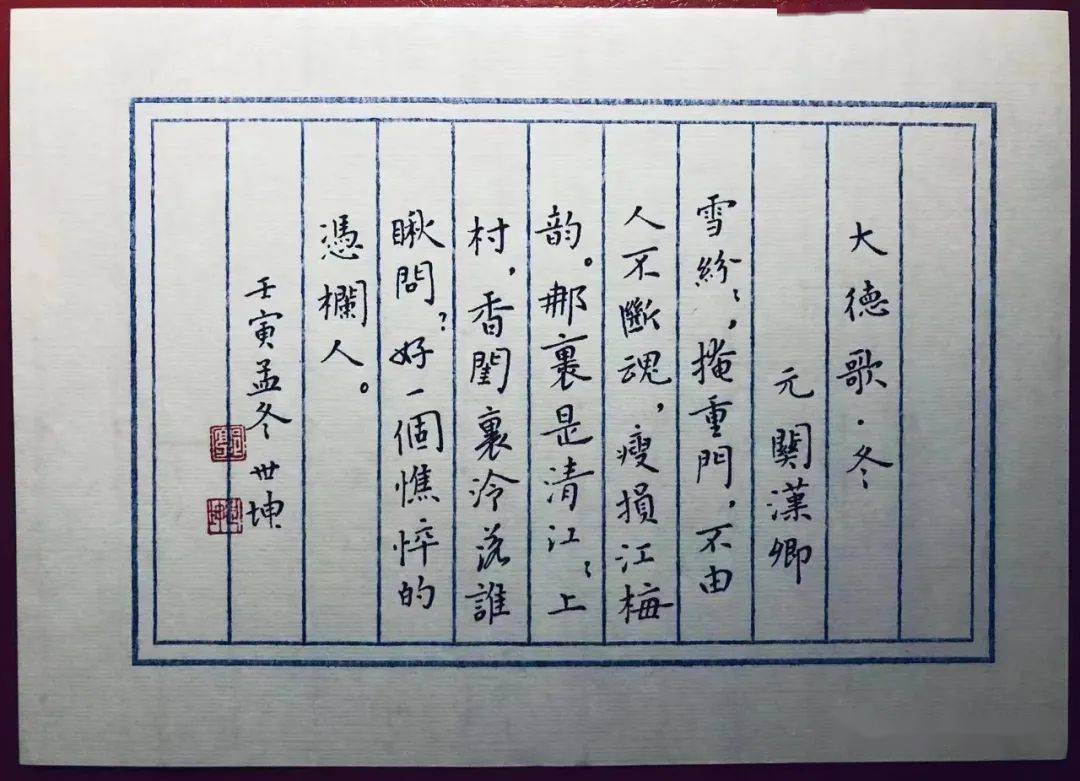 大德歌·冬
元 關漢卿
雪紛〻，掩重門，不由
人不斷魂，瘦損江梅
韵。那裏是清江〻上
村，香閨裏冷落誰
瞅問？好一個憔悴的
憑欄人。
壬寅孟冬 世坤